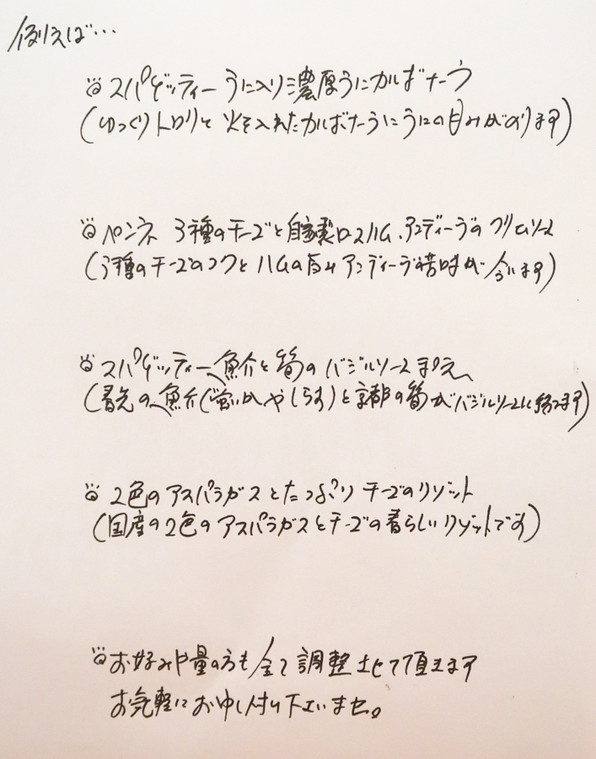 例えば…
スパゲッティー うに入り濃厚うにカルボナーラ
(ゆっくりトロリと火を入れたカルボナーラにうにの甘みがのります)
ペンネ 3種のチーズと自家製ロースハム、アンディーブのクリームソース
(3種のチーズのコクとハムの旨みアンディーブの苦味が合います)
スパゲッティー 魚介と筍のバジルソース和え
(春先の魚介(蛍いかやしらす)と京都の筍がバジルソースに絡みます)
2色のアスパラガスとたっぷりチーズのリゾット
(国産の2色のアスパラガスとチーズの春らしいリゾットです)
お好みや量の方も全て調整させて頂きます
お気軽にお申し付け下さいませ。